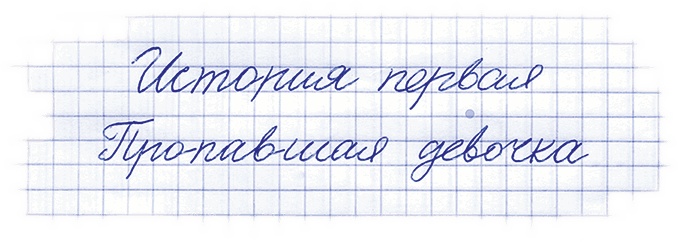 История первая
Пропавшая девочка